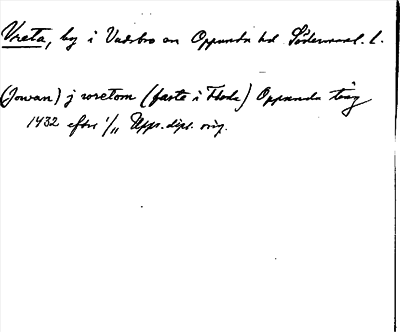 Vreta, by i Vadsbro sn Oppunda hd Södermanl. l.
(Jowan) j wretom (faste i Floda) Oppunda ting
1432 efter 1/11 Upps. dipl. orig.